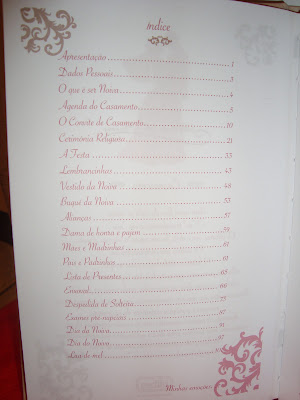 Índice
Apresentação 1
Dados Pessoais 3
O que é ser Noiva 4
Agenda do Casamento 5
O Convite de Casamento 10
Cerimônia Religiosa 21
A Festa 35
Lembrancinhas 43
Vestido da Noiva 48
Buquê da Noiva 53
Alianças 57
Dama de honra e pajem 59
Mães e Madrinhas 61
Pais e Padrinhos 61
Lista de Presentes 65
Enxoval 66
Despedida de Solteira 75
Exames pré-nupciais
Dia da Noiva
Dia do Noivo
Lua de mel
Minhas emoções